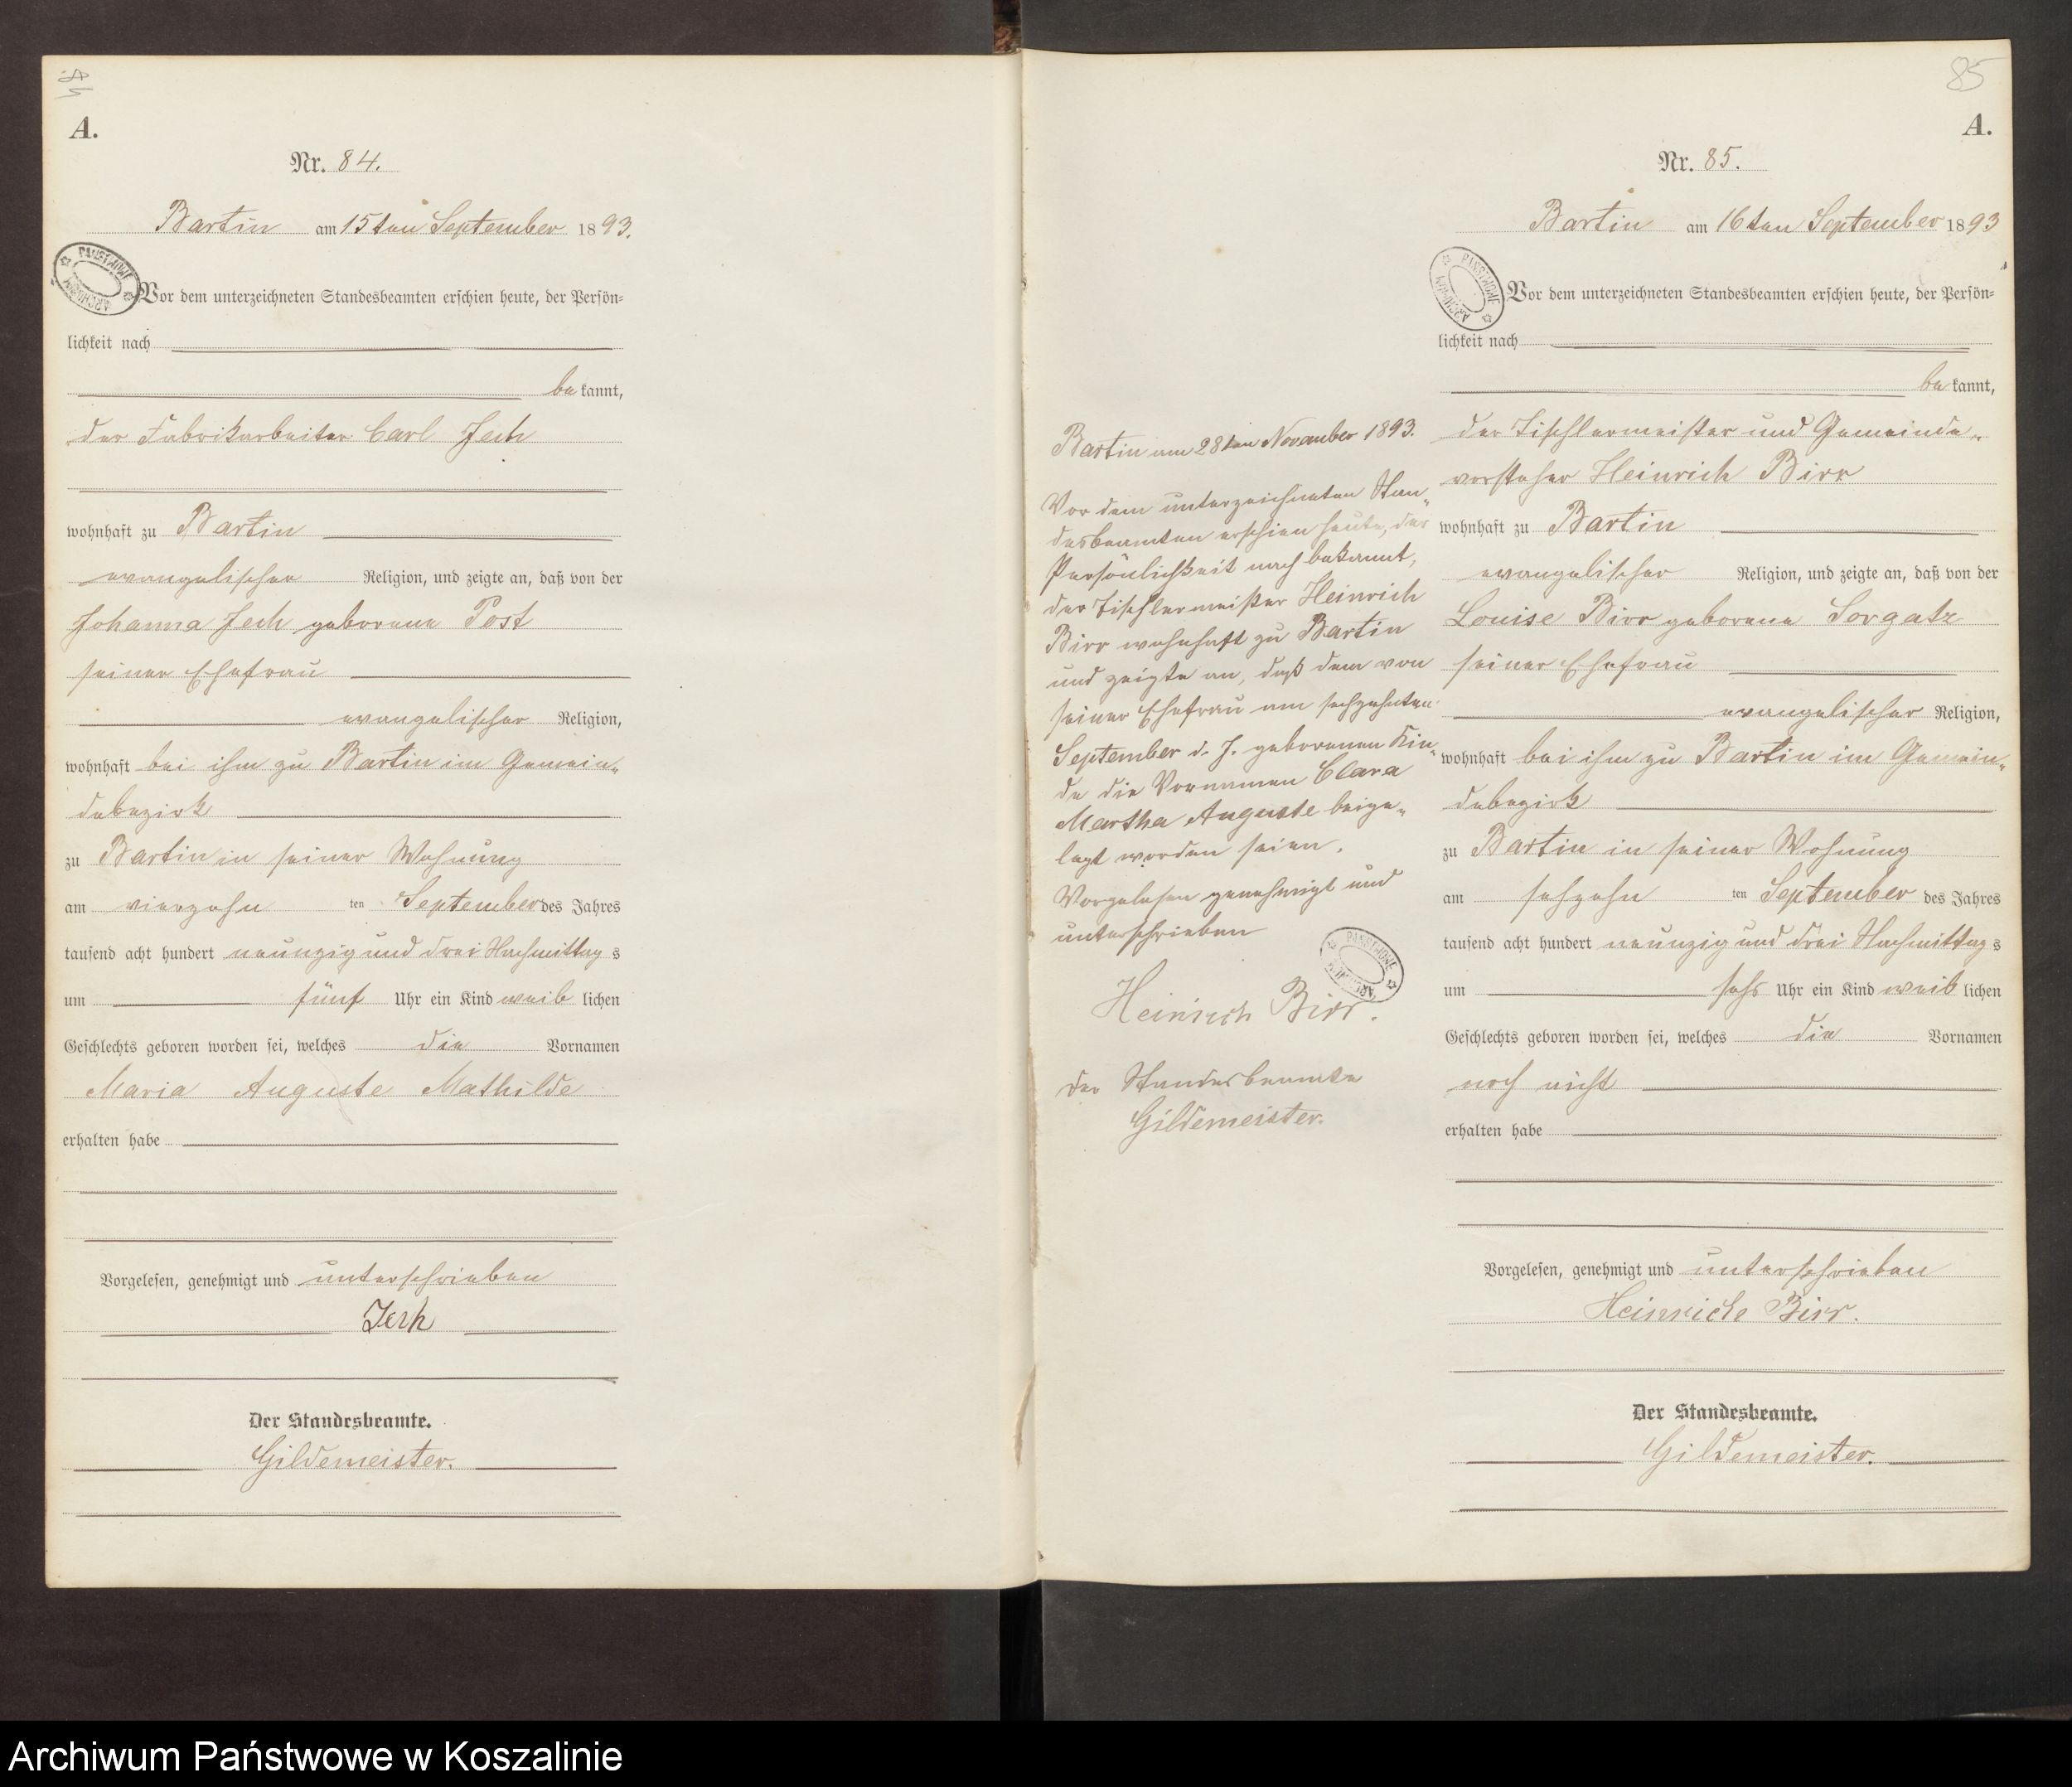 A.
Nr. 84.
Bartin am 15ten September 1893.
PAŃSTWOWE ARCHIWUM
Vor dem unterzeichneten Standesbeamten erschien heute, der Persön=
lichkeit nach
bekannt,
der Fabrikarbeiter Carl Jech
wohnhaft zu Bartin
evangelischer Religion, und zeigte an, daß von der
Johanna Jech geborene Post
seiner Ehefrau
evangelischer Religion,
wohnhaft bei ihm zu Bartin im Gemein„
debezirk
zu Bartin in seiner Wohnung
am vierzehn ten September des Jahres
tausend acht hundert neunzig und drei Nachmittags
um fünf Uhr ein Kind weiblichen
Geschlechts geboren worden sei, welches die Vornamen
Maria Auguste Mathilde
erhalten habe
Vorgelesen, genehmigt und unterschrieben
Jech
Der Standesbeamte.
Gildemeister.
85
A.
Nr. 85.
Bartin am 16ten September 1893
PAŃSTWOWE ARCHIWUM
Vor dem unterzeichneten Standesbeamten erschien heute, der Persön=
lichkeit nach
bekannt,
der Tischlermeister und Gemeinde„
vorsteher Heinrich Birr
wohnhaft zu Bartin
evangelischer Religion, und zeigte an, daß von der
Louise Birr geborene Sorgatz
seiner Ehefrau
evangelischer Religion,
wohnhaft bei ihm zu Bartin im Gemein„
debezirk
zu Bartin in seiner Wohnung
am sechzehn ten September des Jahres
tausend acht hundert neunzig und drei Nachmittags
um sechs Uhr ein Kind weiblichen
Geschlechts geboren worden sei, welches die Vornamen
noch nicht
erhalten habe
Vorgelesen, genehmigt und unterschrieben
Heinrich Birr.
Der Standesbeamte.
Gildemeister.
Bartin am 28ten November 1893.
Vor dem unterzeichneten Stan„
desbeamten erschien heute, der
Persönlichkeit nach bekannt,
der Tischlermeister Heinrich
Birr wohnhaft zu Bartin
und zeigte an, daß dem von
seiner Ehefrau am sechzehnten
September d. J. geborenen Kin„
de die Vornamen Clara
Martha Auguste beige„
legt worden seien.
Vorgelesen genehmigt und
unterschrieben
PAŃSTWOWE ARCHIWUM
Heinrich Birr.
Der Standesbeamte
Gildemeister.
Archiwum Państwowe w Koszalinie